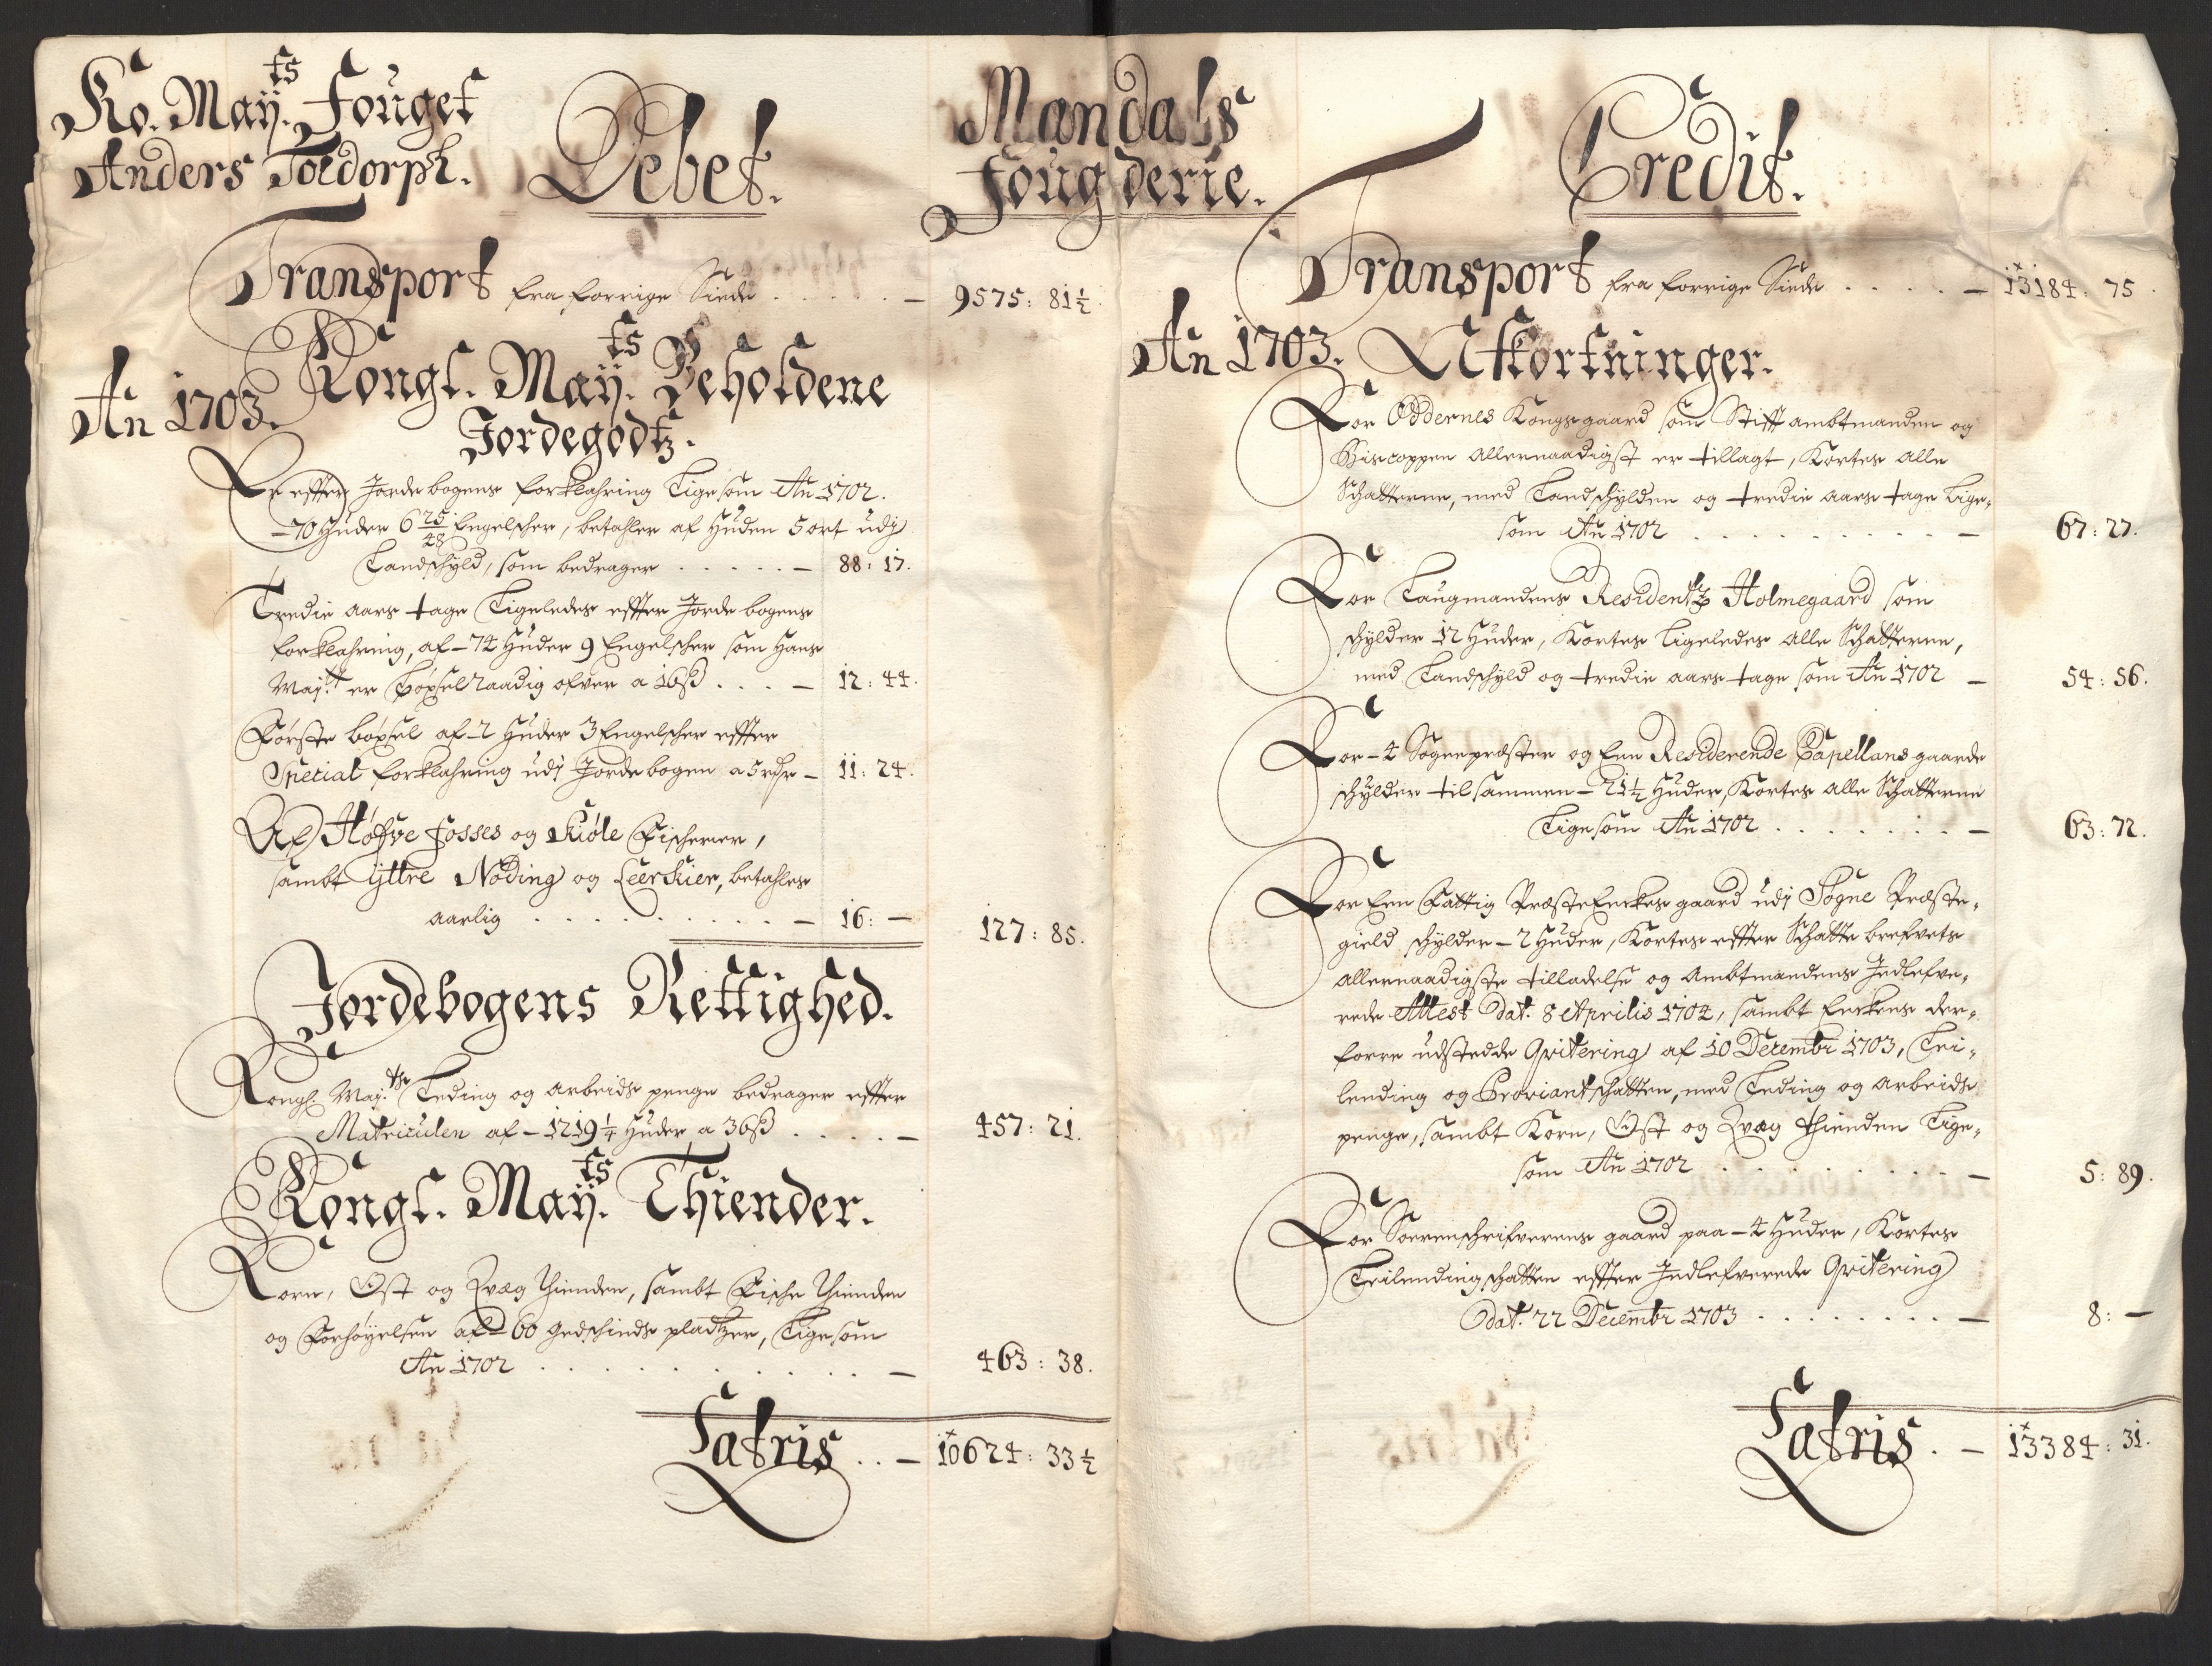 Ko. Maÿ.ts Fouget
Anders Toldorph.
Debet.
Mandals
Fougderie.
Transport fra forrige Siude . . . . . — 9575: 81½
An 1703.
Kongl. Maÿ.ts Beholdene
Jordegodtz.
Er effter Jordebogens forklahring Lige som An 1702.
– 70 Huder 6 25/48 Engelscher, betahler af Huden 5 ort udj
Landschyld, som bedrager . . . . . — 88: 17.
Tredie aars tage Ligeledes effter Jordebogens
forklahring, af – 74 Huder 9 Engelscher som Hans
May.tt er Böxsel raadig ofver a 16ß . . . — 12: 44.
Förste böxsel af – 2 Huder 3 Engelscher effter
Spetial forklahring udj Jordebogen a 5 rdr – 11: 24.
Af Höfve fosses og Kiöle Fischerier,
sambt Ÿttre Nöding og Leerkier, betahles
aarlig . . . . . . . . . . — 16: —
127: 85.
Jordebogens Rettighed.
Kongl. May.tts Leding og arbeids penge bedrager effter
Matriculen af – 1219¼ Huder a 36ß . . . . — 457: 21.
Kongl. Maÿ.ts Thiender.
Korn, Ost og Qvæg thienden, sambt Fische thienden
og Forhöyelsen af – 60 gedschinds pladtzer, Lige som
An 1702 . . . . . . . . . . . — 463: 38.
Latris . . — 10624: 33½
Credit.
Transport fra forrige Siude . . . . — 13184: 75.
An 1703. Afkortninger.
For Oddernes Kongsgaard som Stifftambtmanden og
Biscoppen allernaadigst er tillagt, Kortes alle
Schatterne, med Landschylden og tredie aars tage Lige-
som An 1702 . . . . . . . . . . — 67: 27.
For Laugmandens Residentz Holmegaard som
schylder 12 Huder, Kortes ligeledes alle Schatterne,
med Landschyld og tredie aars tage som An 1702 — 54: 56.
For – 4 Sognepræster og Een Residerende Capellans gaarde
schylder tilsammen – 21½ Huder, Kortes alle Schatterne
Lige som An 1702 . . . . . . . — 63: 72.
For Een Fattig Præste Enckes gaard udj Sögne Præste-
gield schylder – 2 Huder, Kortes effter Schatte brefvets
allernaadigste tilladelse og Ambtmandens Indlefve-
rede Attest Dat. 8 Aprilis 1704, sambt Enckens der-
forre udstedde Qvitering af 10 Decembr 1703, Lei-
lending og Proviantschatten, med Leding og arbeids
penge, sambt Korn, Ost og Qvæg thienden Lige-
som An 1702 . . . . . . . . . — 5: 89.
For Sorenschrifverens gaard paa – 4 Huder, Kortes
Leilendingschatten effter Indlefverede Qvitering
Dat. 22 Decembr 1703 . . . . . . . . — 8: —
Latris . — 13384: 31.